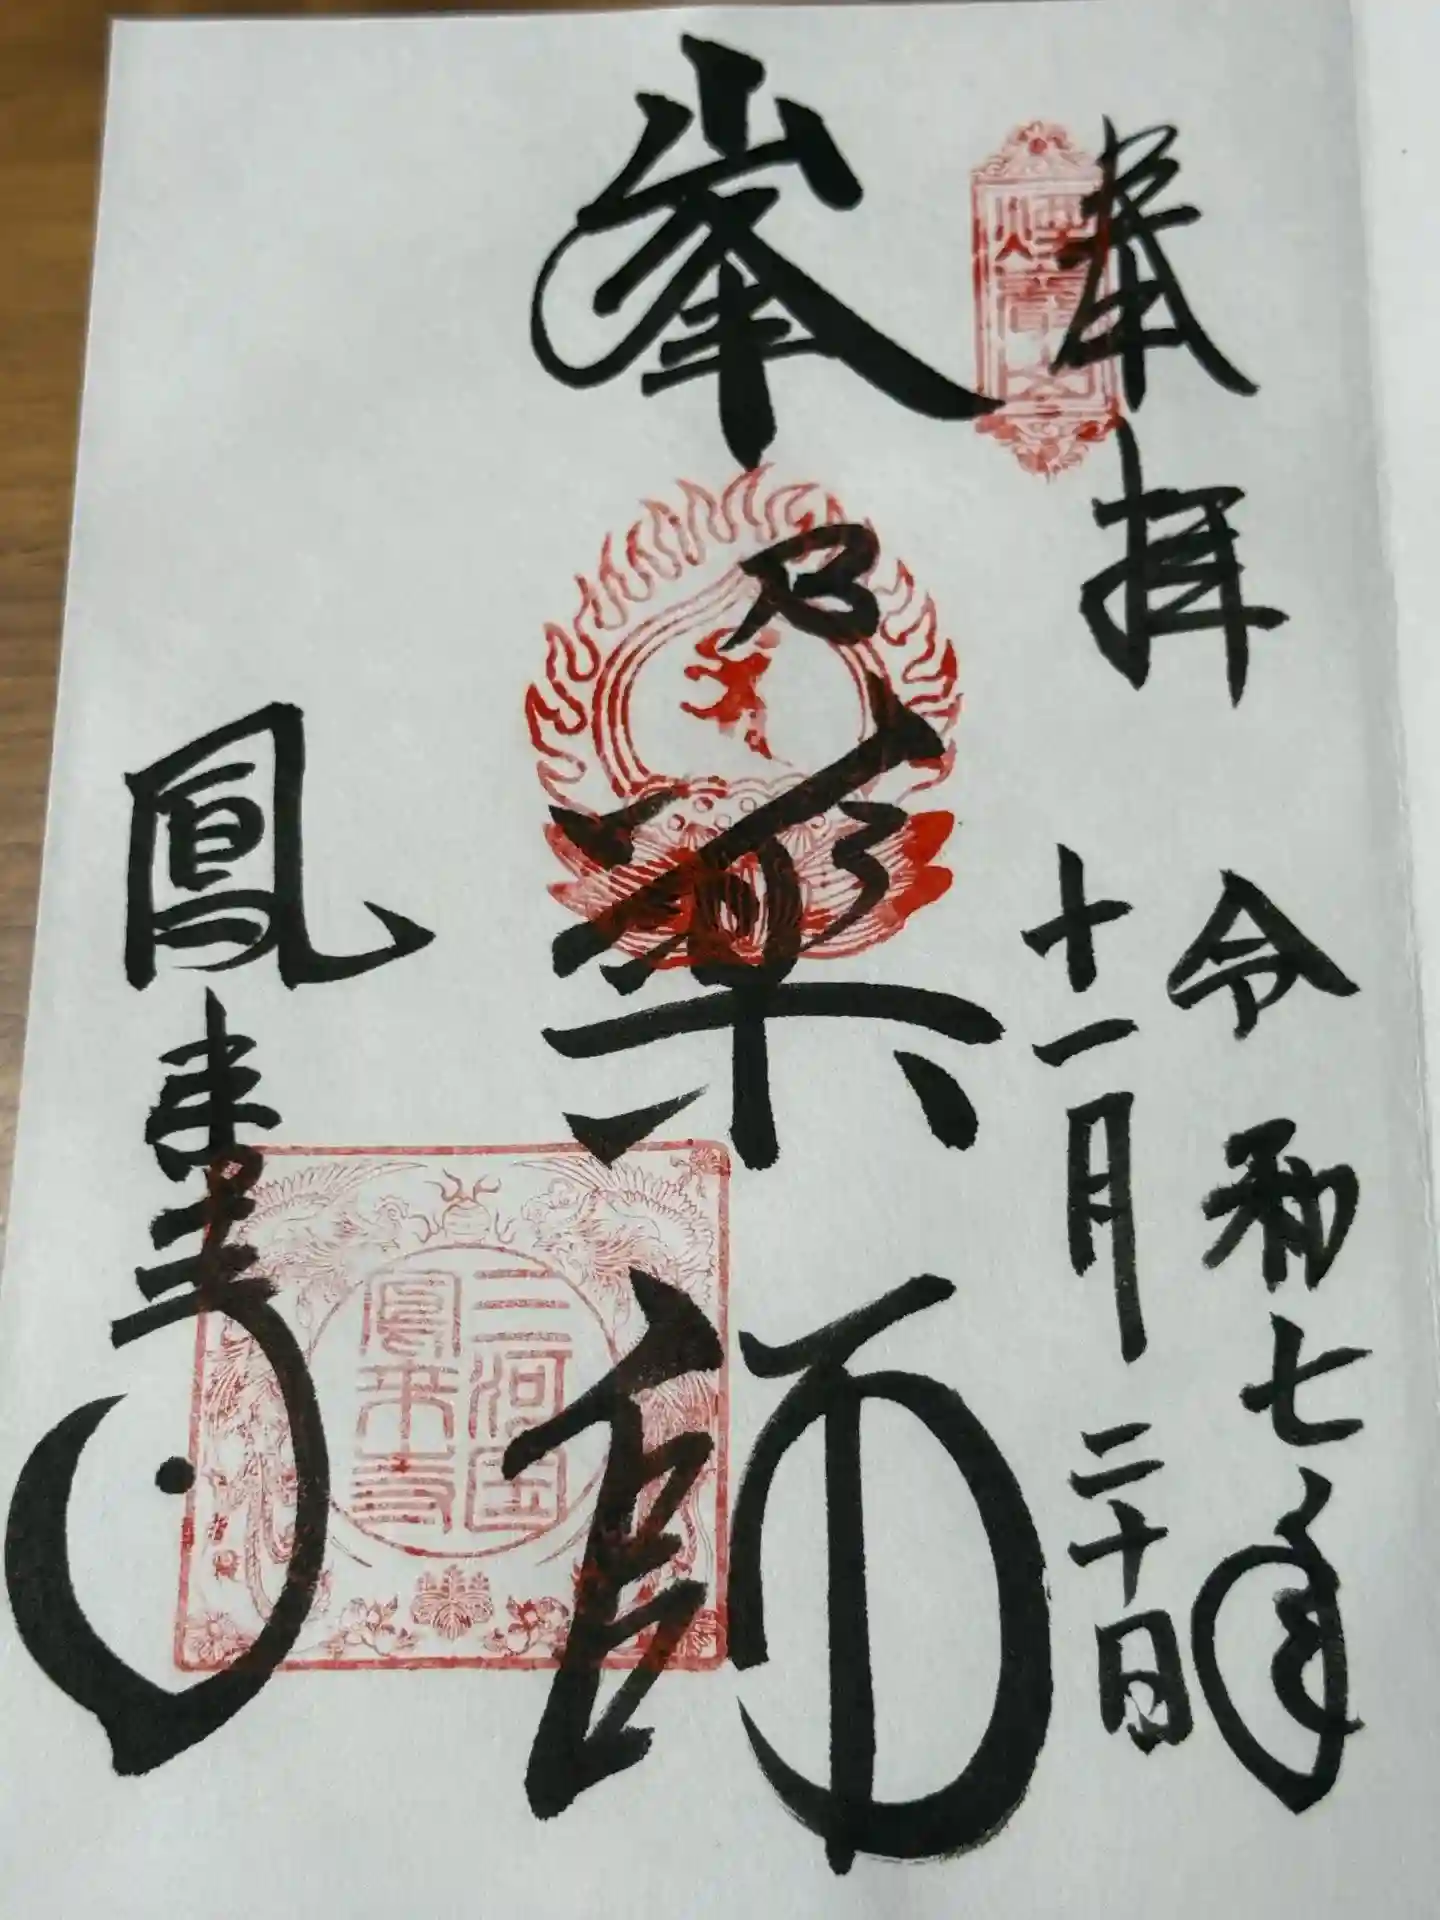 奉拝
令和七年
十一月二十日
煙巌山
峯乃薬師
三河国
鳳来寺
鳳来寺